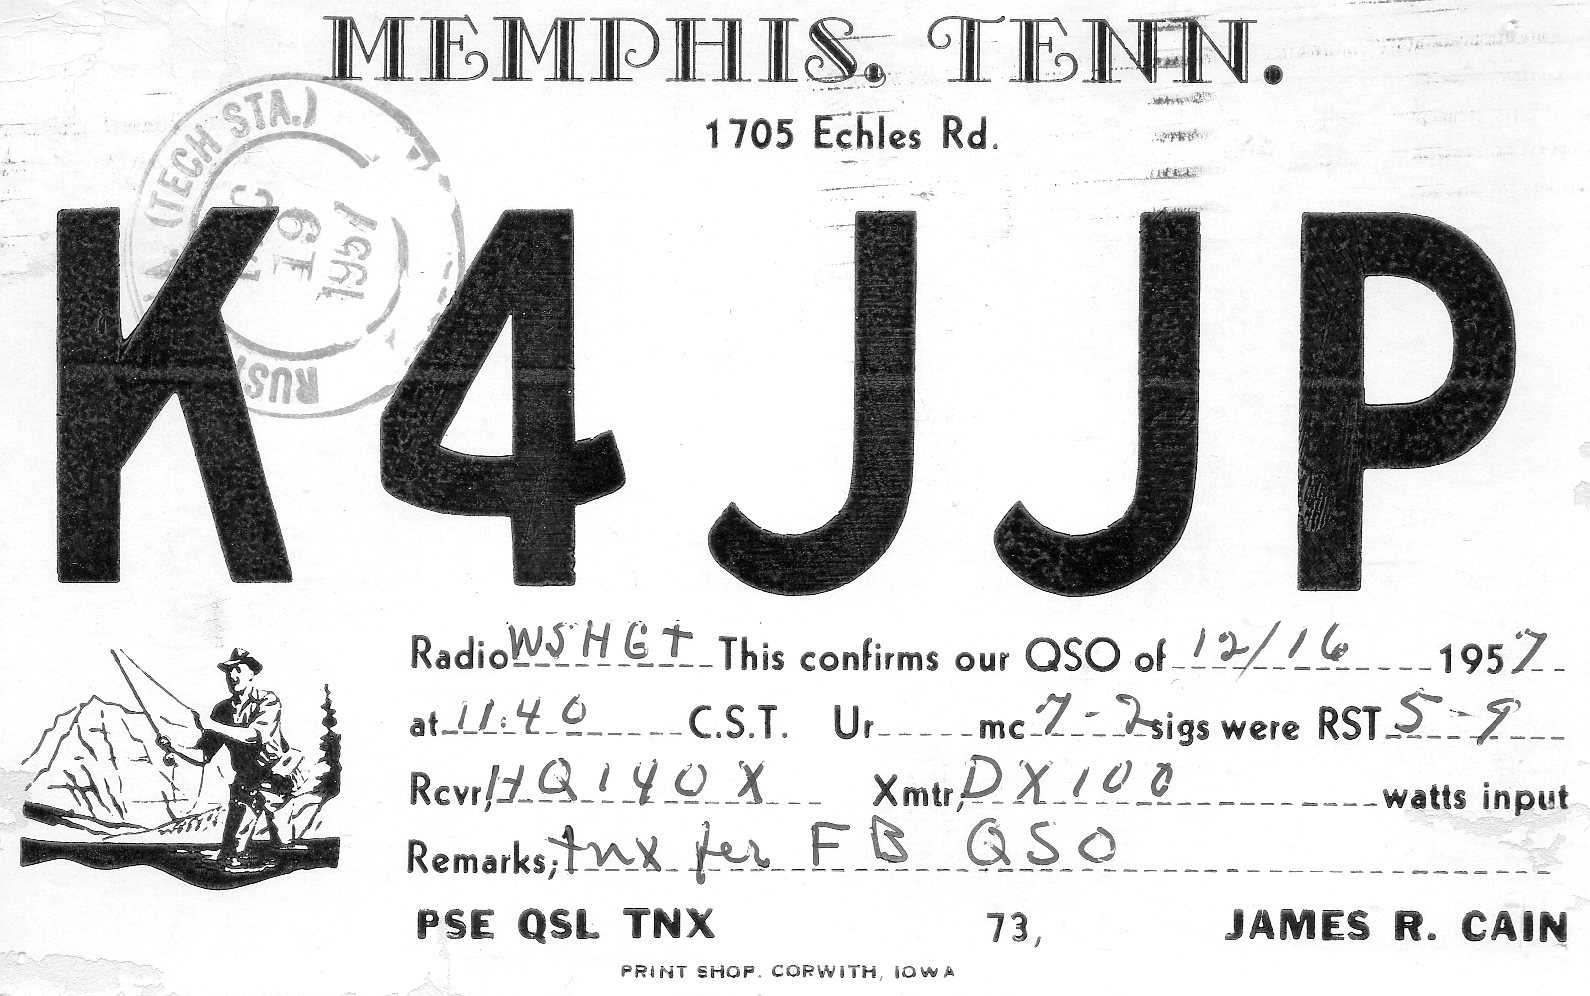 MEMPHIS, TENN.
1705 Echles Rd.
(TECH STA.)
RUST
19
1957
K4JJP
Radio W5HGT This confirms our QSO of 12/16 1957
at 11:40 C.S.T. Ur mc 7-2 sigs were RST 5-9
Rcvr; HQ140X Xmtr; DX100 watts input
Remarks; tnx fer FB QSO
PSE QSL TNX 73, JAMES R. CAIN
PRINT SHOP, CORWITH, IOWA